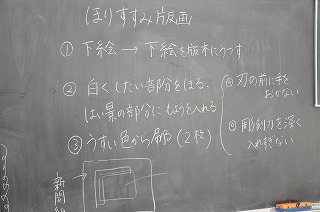 ほりすすみ版画
① 下絵 → 下絵を版木にうつす
② 白くしたい部分をほる。
はい景の部分にもようを入れる
③ うすい色から刷る (2枚)
◎ 刃の前に手を
おかない
◎ 彫刻刀を深く
入れすぎない
新聞紙